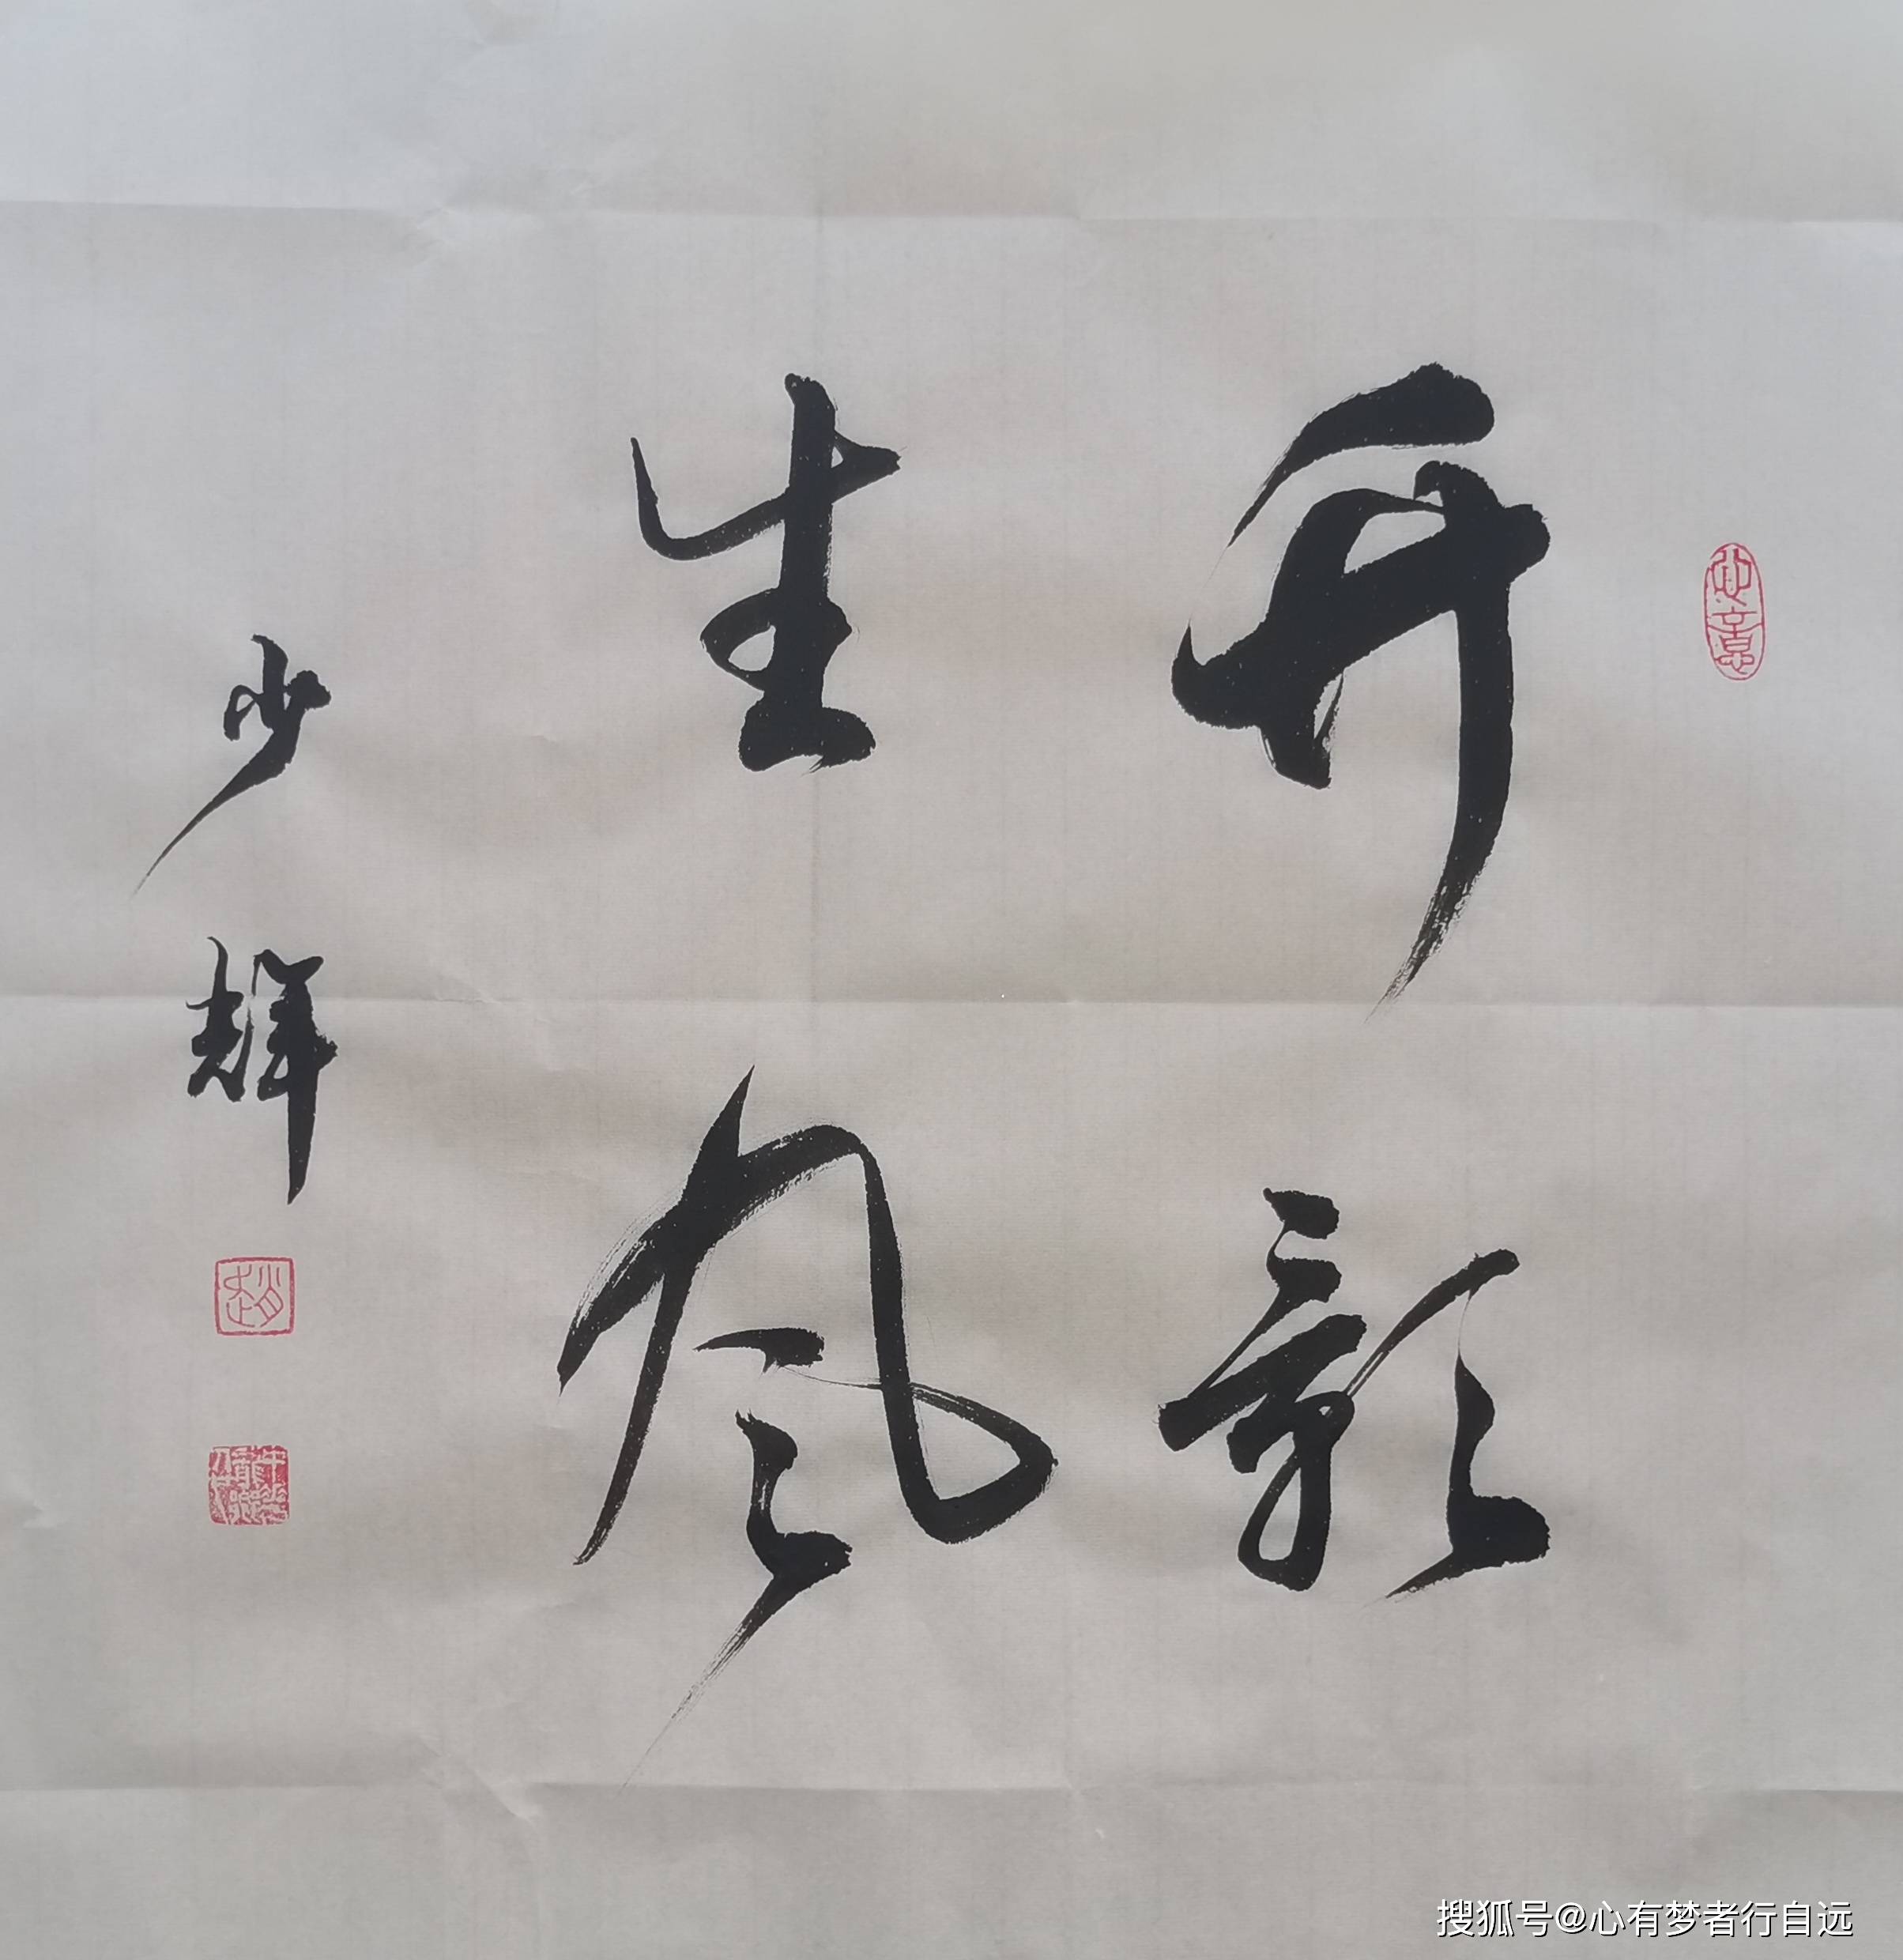 开彰
生风
少辉
趙
搜狐号@心有梦者行自远